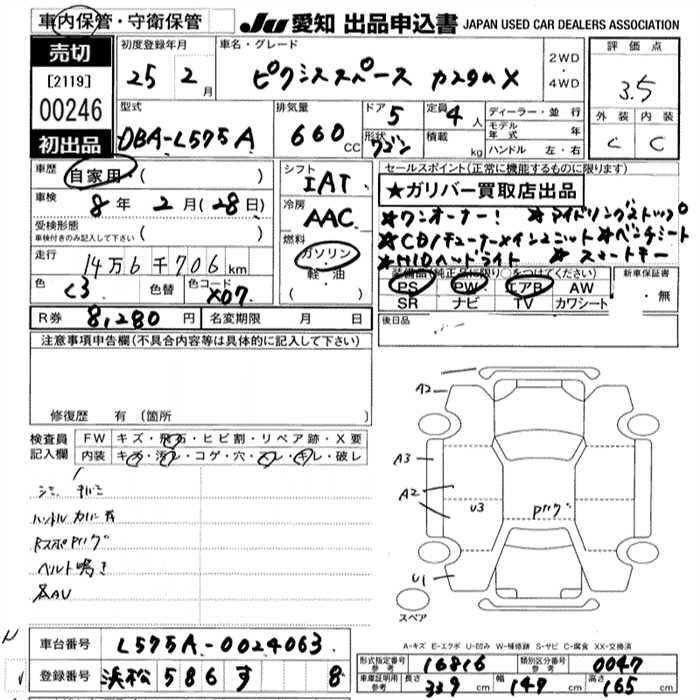 車内保管・守衛保管
Ju 愛知 出品申込書 JAPAN USED CAR DEALERS ASSOCIATION
売切
[2119]
00246
初出品
初度登録年月
25 2月
車名・グレード
ピクシススペース カスタムX
2WD・4WD
評価点
3.5
外装 内装
C C
型式
DBA-L575A
排気量
660 CC
ドア 5
形状 ワゴン
定員 4人
積載 kg
ディーラー・並行
モデル年式 年
ハンドル 左・右
車歴 自家用 ( )
車検 8年 2月(28日)
受検形態
車検付きのみ記入して下さい ( )
走行 14万6千706km
色 色替 色コード X07
シフト IAT
冷房 AAC
燃料
ガソリン
軽・油
( )
セールスポイント(正常に機能するものに限ります)
★ガリバー買取店出品
★ワンオーナー! ★アイドリングストップ
★CD1チューナーメインユニット★ベンチシート
★HIDヘッドライト ★スマートキー
装備品(純正品に限り○をつけてください)
PS PW エアB AW
SR ナビ TV カワシート
新車保証書
・無
後日品
R券 8,280円 名変期限 月 日
注意事項申告欄(不具合内容等は具体的に記入して下さい)
修復歴 有 (箇所
検査員記入欄
FW キズ・飛石・ヒビ割・リペア跡・X要
内装 キズ・汚レ・コゲ・穴・スレ・キレ・破レ
ベルト鳴き
A2
A3
A2
U3
U1
スペア
A-キズ E-エクボ U-凹み W-補修跡 S-サビ C-腐食 XX-交換済
車台番号 L575A-0024063
登録番号 浜松 586 す 8
形式指定番号 参考 16816 類別区分番号 参考 0047
車庫証明用 参考 長さ 339cm 幅 147cm 高さ 165cm